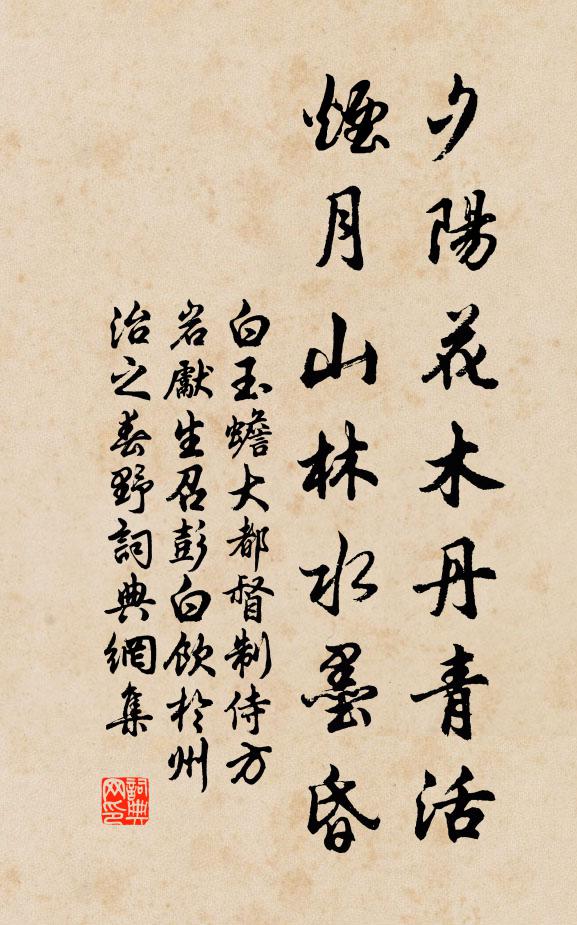 夕陽花木丹青活
煙月山林水墨昏
白玉蟾大都督制侍方
岩獻生召彭白飲於州
治之春野詞典網集
詞典网印